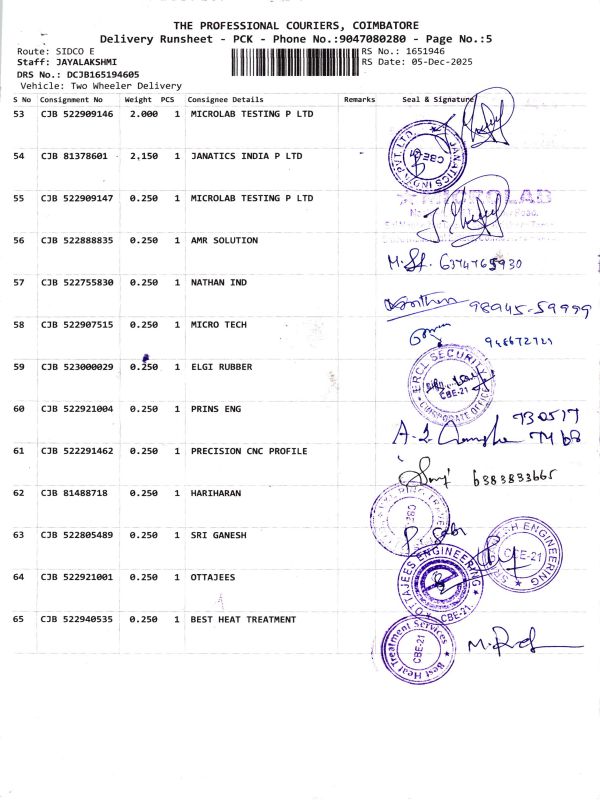 THE PROFESSIONAL COURIERS, COIMBATORE
Delivery Runsheet - PCK - Phone No.:9047080280 - Page No.:5
Route: SIDCO E
RS No.: 1651946
Staff: JAYALAKSHMI
RS Date: 05-Dec-2025
DRS No.: DCJB165194605
Vehicle: Two Wheeler Delivery
S No Consignment No Weight PCS Consignee Details Remarks Seal & Signature
53 CJB 522909146 2.000 1 MICROLAB TESTING P LTD
54 CJB 81378601 2,150 1 JANATICS INDIA P LTD
JANATICS INDIA PVT. LTD. CBE-21
55 CJB 522909147 0.250 1 MICROLAB TESTING P LTD
MICROLAB
56 CJB 522888835 0.250 1 AMR SOLUTION
6374765930
57 CJB 522755830 0.250 1 NATHAN IND
98945-59999
58 CJB 522907515 0.250 1 MICRO TECH
59 CJB 523000029 0.250 1 ELGI RUBBER
ERCL SECURITY CBE-21 CORPORATE OFFICE
60 CJB 522921004 0.250 1 PRINS ENG
61 CJB 522291462 0.250 1 PRECISION CNC PROFILE
6383833665
62 CJB 81488718 0.250 1 HARIHARAN
63 CJB 522805489 0.250 1 SRI GANESH
ENGINEERING CBE-21
64 CJB 522921001 0.250 1 OTTAJEES
OTTAJEES ENGINEERING CBE-21
65 CJB 522940535 0.250 1 BEST HEAT TREATMENT
Best Heat Treatment Services CBE-21